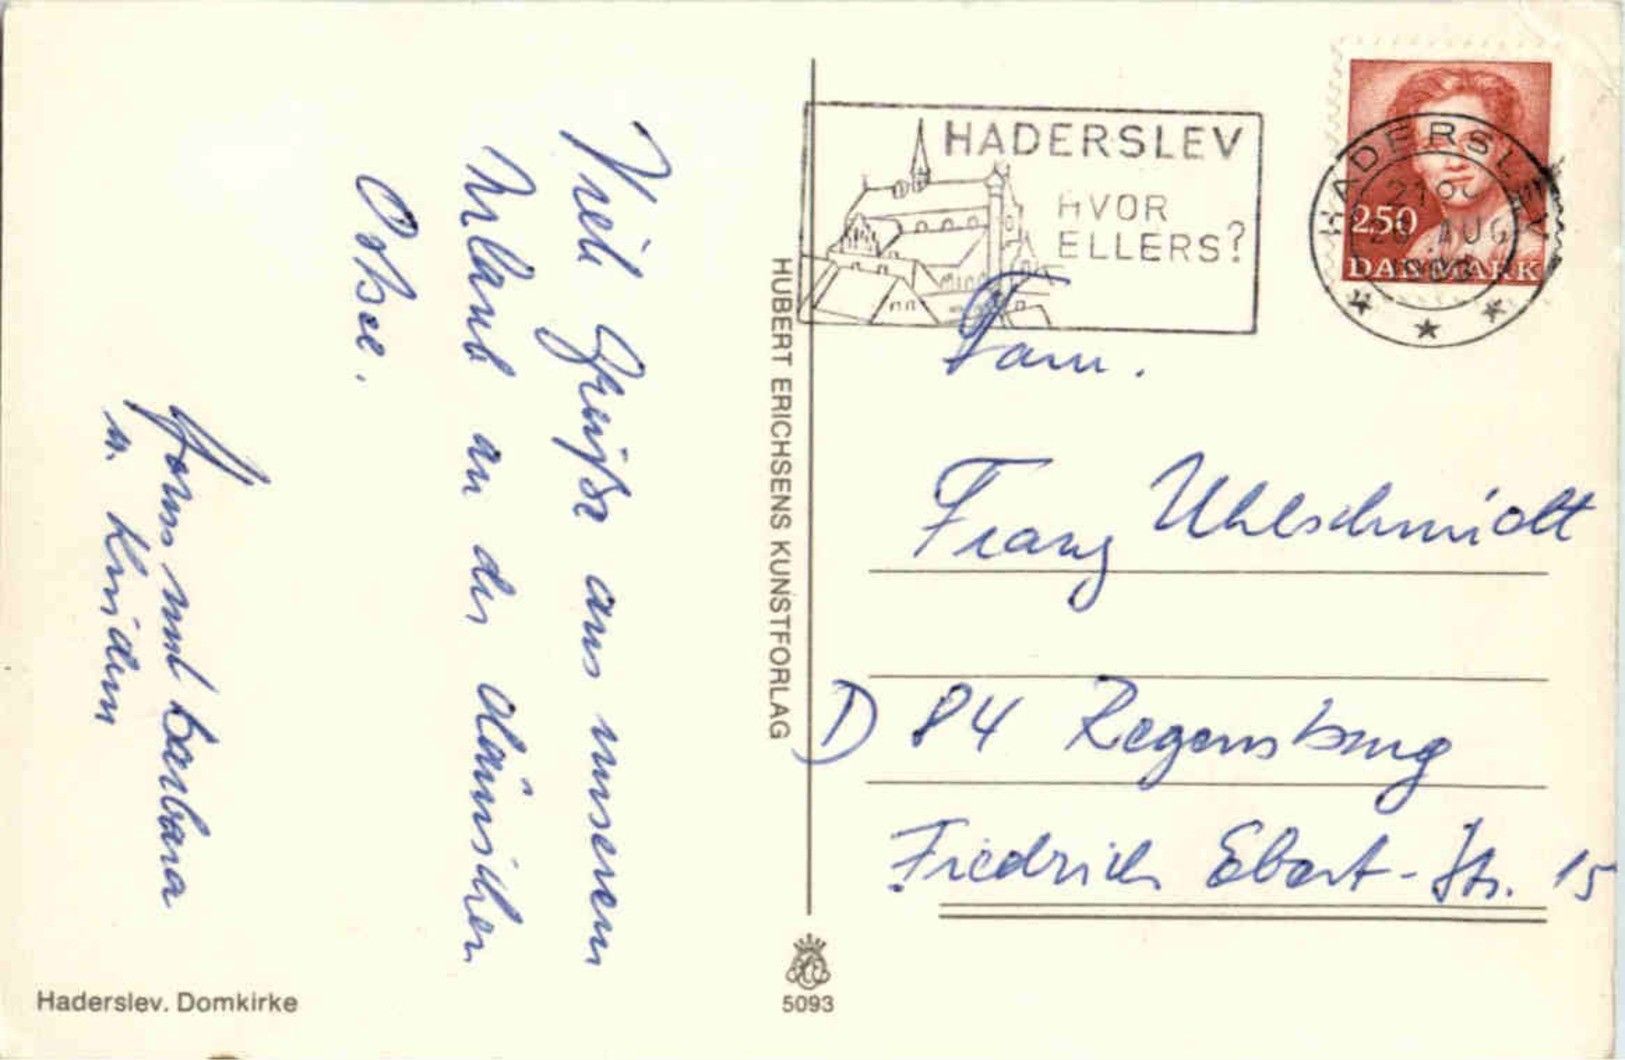 Viele Grüße aus unserem
Urlaub an der dänischen
Ostsee.
Hans und Barbara
u. Kinder
HUBERT ERICHSENS KUNSTFORLAG
HADERSLEV
HVOR
ELLERS?
HADERSLEV
AUG
250
DANMARK
Fam.
Franz Uhlschmidt
D 84 Regensburg
Friedrich Ebert-Str. 15
Haderslev. Domkirke
5093